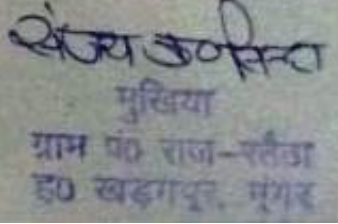 संजय कुमार सिन्हा
मुखिया
ग्राम पं0 राज-रतैठा
ह0 खड़गपुर, मुंगेर